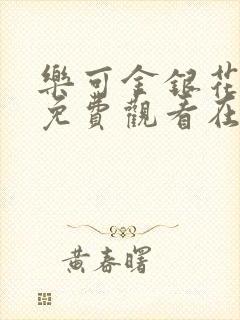 樂可金銀花
免費觀看在
黃春曙